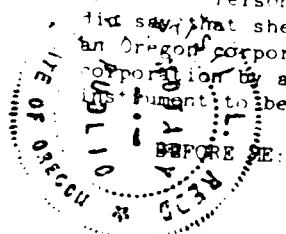 Person
did say that she
an Oregon corpor
corporation by a
instrument to be
BEFORE ME:
PUBLIC
STATE OF OREGON